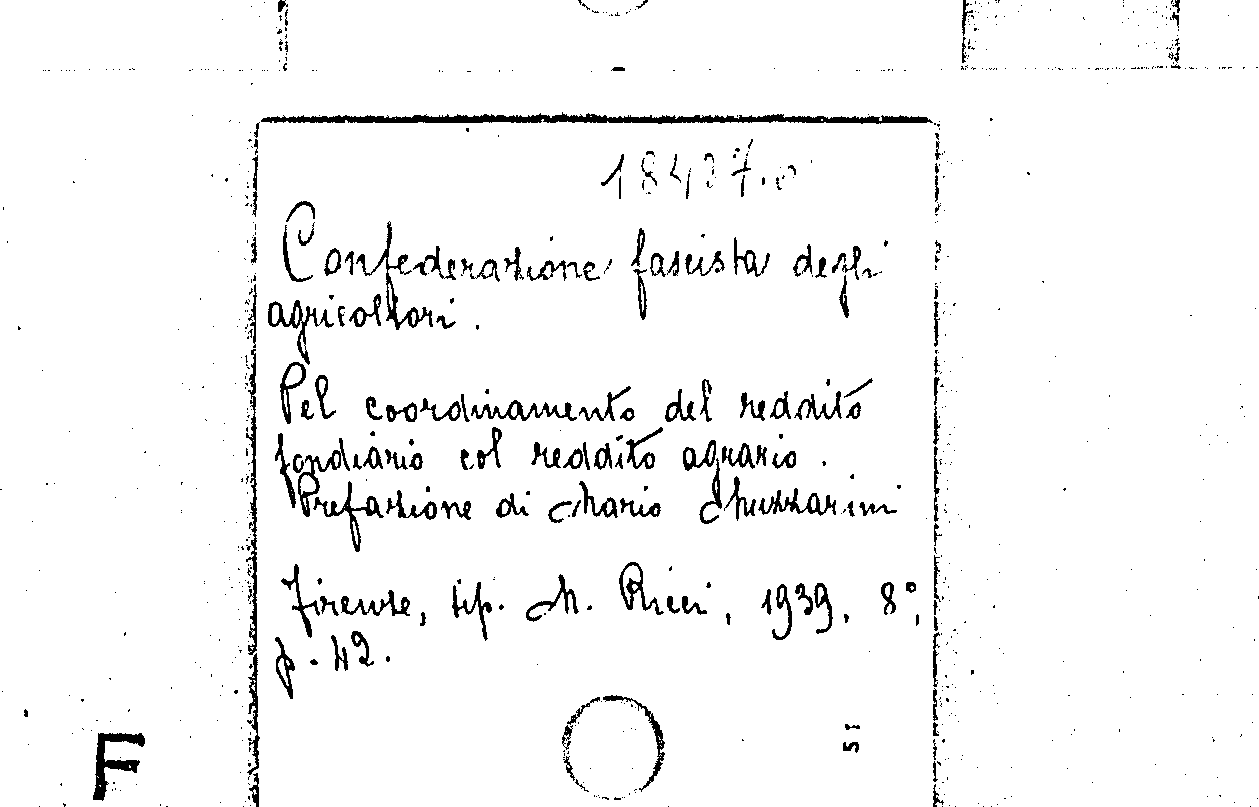 18427.0
Confederazione fascista degli
agricoltori.
Pel coordinamento del reddito
fondiario col reddito agrario.
Prefazione di Mario Muzzarini
Firenze, tip. M. Ricci, 1939. 8°,
p. 42.
51
F